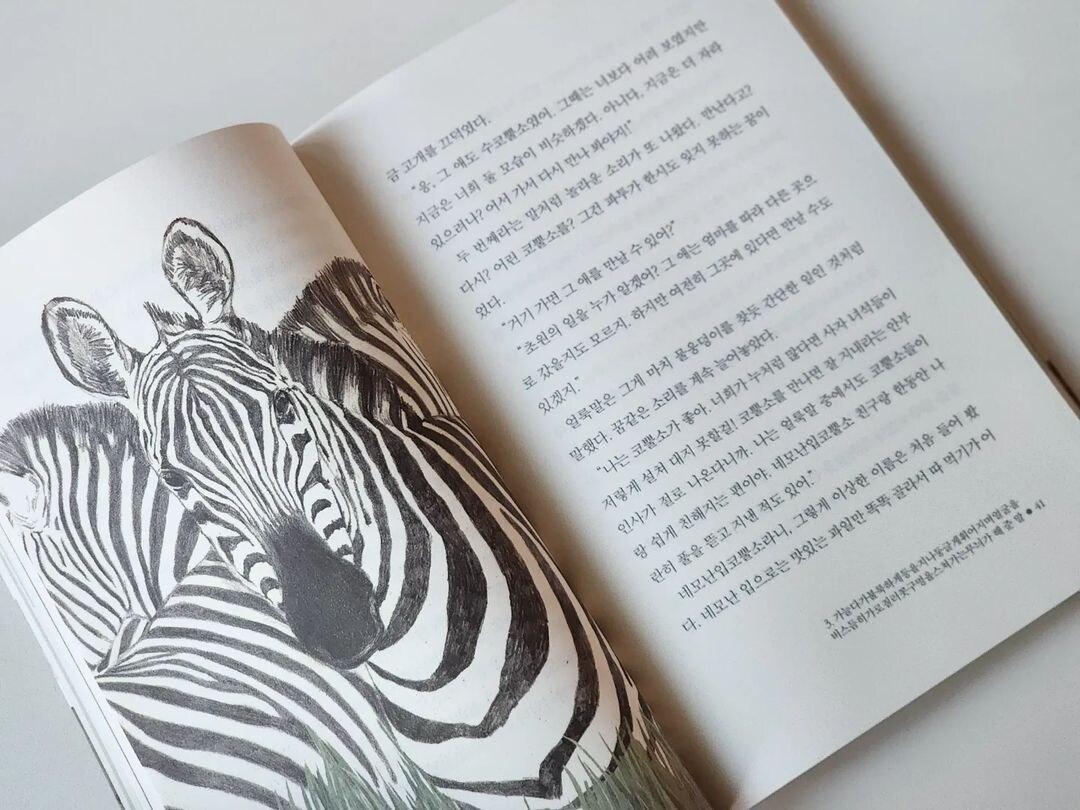 금 고개를 끄덕였다.
"응, 그 애도 수코뿔소였어. 그때는 너보다 어려 보였지만
지금은 너희 둘 모습이 비슷하겠다. 아니다, 지금은 더 자라
있으려나? 어서 가서 다시 만나 봐야지!"
두 번째라는 말처럼 놀라운 소리가 또 나왔다. 만난다고?
다시? 어린 코뿔소를? 그건 파투가 한시도 잊지 못하는 꿈이
었다.
"거기 가면 그 애를 만날 수 있어?"
"초원의 일을 누가 알겠어? 그 애는 엄마를 따라 다른 곳으
로 갔을지도 모르지. 하지만 여전히 그곳에 있다면 만날 수도
있겠지."
얼룩말은 그게 마치 물웅덩이를 찾듯 간단한 일인 것처럼
말했다. 꿈같은 소리를 계속 늘어놓았다.
"나는 코뿔소가 좋아. 너희가 누처럼 많다면 사자 녀석들이
저렇게 설쳐 대지 못할걸! 코뿔소를 만나면 잘 지내라는 안부
인사가 절로 나온다니까. 나는 얼룩말 중에서도 코뿔소들이
랑 쉽게 친해지는 편이야. 네모난입코뿔소 친구랑 한동안 나
란히 풀을 뜯고 지낸 적도 있어."
네모난입코뿔소라니, 그렇게 이상한 이름은 처음 들어 봤
다. 네모난 입으로는 맛있는 과일만 똑똑 골라서 따 먹기가 어
3. 가늘다가불룩하게등을지나둥글게휘어지며얼굴을
비스듬히가로질러콧구멍을스쳐가는무늬가 해 준 말 ● 41